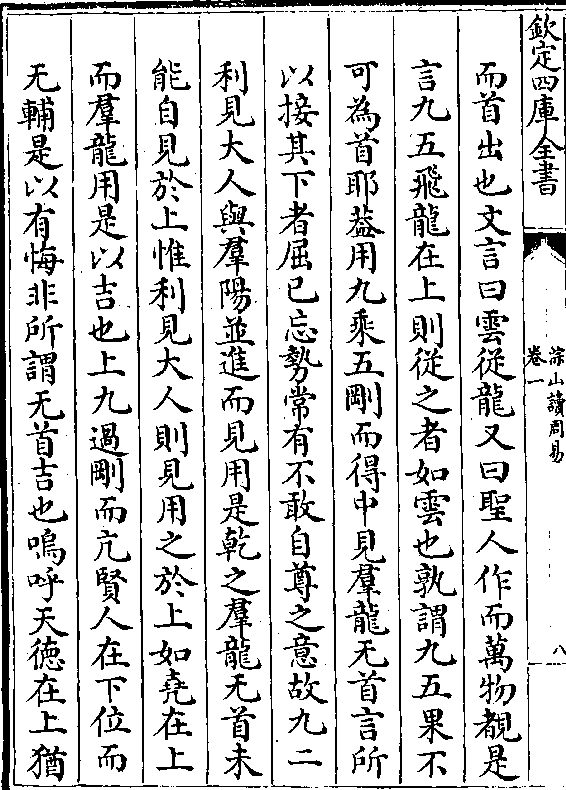 欽定四庫全書
淙山讀周易
卷一
八
而首出也文言曰雲從龍又曰聖人作而萬物覩是
言九五飛龍在上則從之者如雲也孰謂九五果不
可為首耶葢用九乘五剛而得中見羣龍无首言所
以接其下者屈已忘勢常有不敢自尊之意故九二
利見大人與羣陽並進而見用是乾之羣龍无首未
能自見於上惟利見大人則見用之於上如堯在上
而羣龍用是以吉也上九過剛而亢賢人在下位而
无輔是以有悔非所謂无首吉也嗚呼天德在上猶